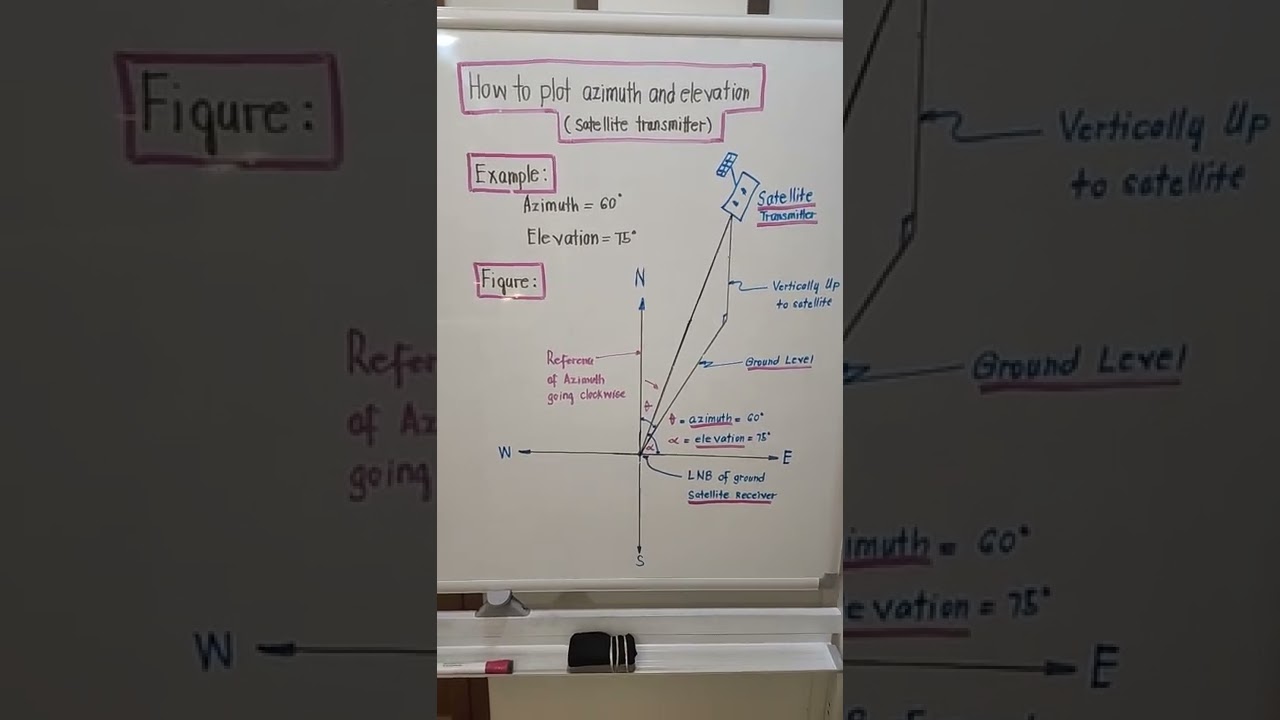 How to plot azimuth and elevation
(satellite transmitter)
Example:
Azimuth = 60°
Elevation = 75°
Satellite
Transmitter
Figure:
N
Vertically Up
to satellite
Reference
of Azimuth
going clockwise
Ground Level
θ
θ = azimuth = 60°
α = elevation = 75°
α
W
E
LNB of ground
Satellite Receiver
S
Figure:
Refer
of A
going
W
Vertically Up
to satellite
Ground Level
imuth = 60°
evation = 75°
E